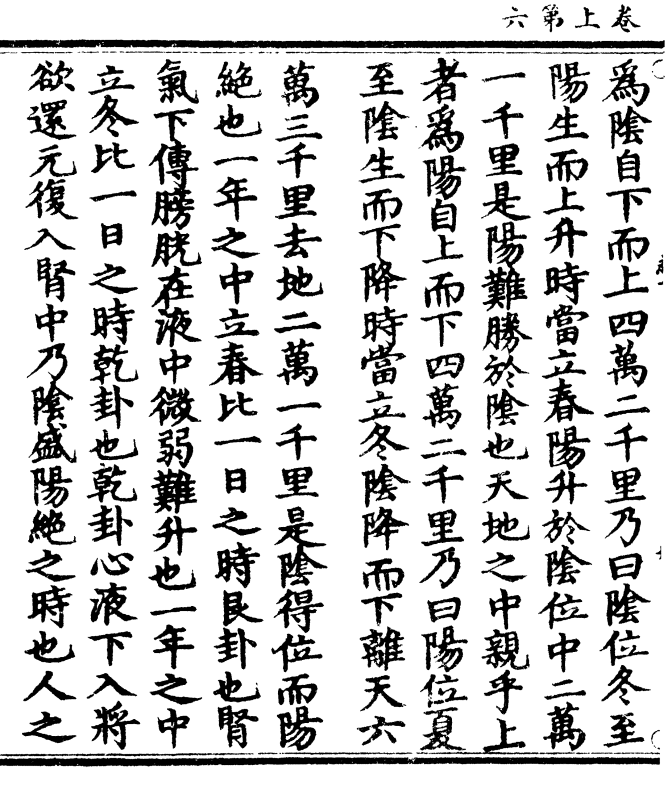 卷上第六
爲陰自下而上四萬二千里乃曰陰位冬至
陽生而上升時當立春陽升於陰位中二萬
一千里是陽難勝於陰也天地之中親乎上
者爲陽自上而下四萬二千里乃曰陽位夏
至陰生而下降時當立冬陰降而下離天六
萬三千里去地二萬一千里是陰得位而陽
絕也一年之中立春比一日之時艮卦也腎
氣下傳膀胱在液中微弱難升也一年之中
立冬比一日之時乾卦也乾卦心液下入將
欲還元復入腎中乃陰盛陽絕之時也人之